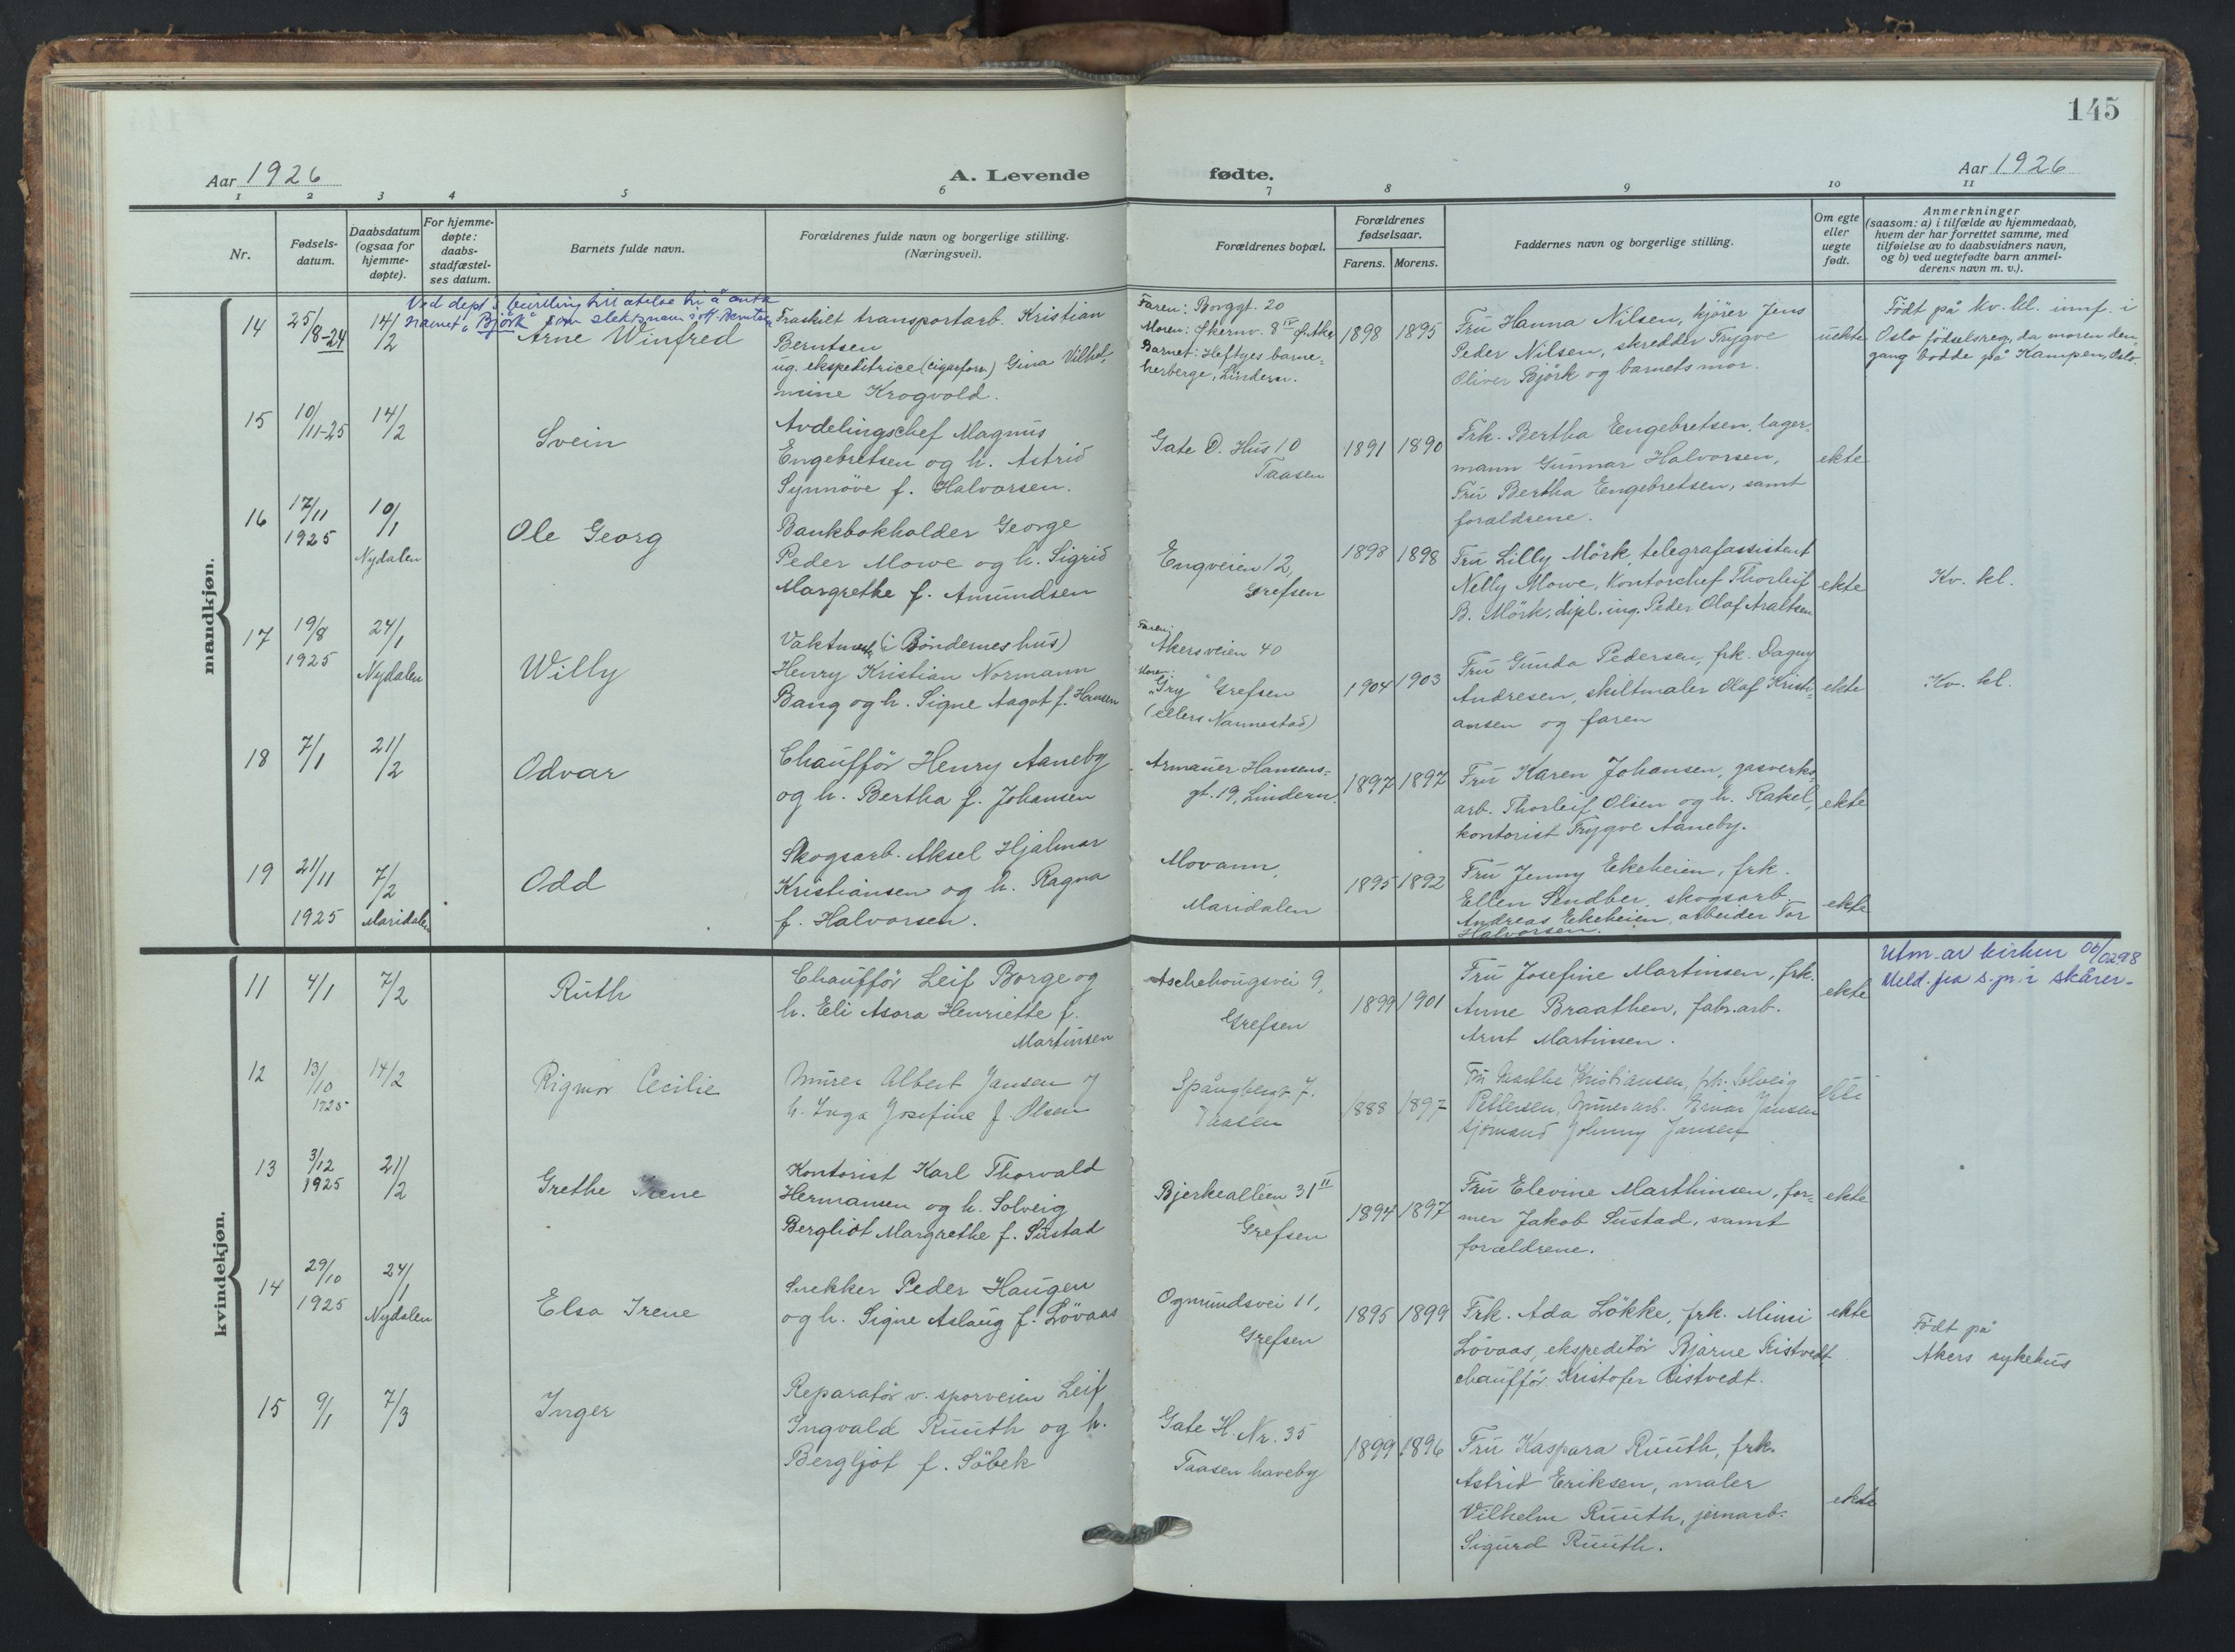 145
Aar 1926
A. Levende
fødte.
Aar 1926
1 2 3 4 5 6 7 8 9 10 11
Nr.
Fødsels-
datum.
Daabsdatum
(ogsaa for
hjemme-
døpte).
For hjemme-
døpte:
daabs-
stadfæstel-
ses datum.
Barnets fulde navn.
Forældrenes fulde navn og borgerlige stilling.
(Næringsvei).
Forældrenes bopæl.
Forældrenes
fødselsaar.
Farens. Morens.
Faddernes navn og borgerlige stilling.
Om egte
eller
uegte
født.
Anmerkninger
(saasom: a) i tilfælde av hjemmedaab,
hvem der har forrettet samme, med
tilføielse av to daabsvidners navn,
og b) ved uegtefødte barn anmel-
derens navn m. v.).
mandkjøn.
Ved dept's til å anta
navnet "Björk" som slektsnavn
14
25/8-24
14/2
Arne Winfred
Fraskilt transportarb. Kristian
Berntsen
ug. ekspeditrice (cigarforr.) Gina Vilhel-
mine Krogvold.
Faren: Borggt. 20
Moren: Økernv. 8 IV Ø. Aker
Barnet: Heftyes barne-
herberge, Lindern.
1898 1895
Fru Hanna Nilsen, kjörer Jens
Peder Nilsen, skredder Trygve
Oliver Björk og barnets mor.
uekte
Födt på kv. kl. innf. i
Oslo födselsreg. da moren den-
gang bodde på Kampen, Oslo.
15
10/11-25
14/2
Svein
Avdelingschef Magnus
Engebretsen og h. Astrid
Synnöve f. Halvorsen.
Gate D. Hus 10
Taasen
1891 1890
Frk. Bertha Engebretsen, lager-
mann Gunnar Halvorsen,
Fru Bertha Engebretsen, samt
forældrene.
ekte
16
17/11
1925
10/1
Nydalen
Ole Georg
Bankbokholder George
Peder Mowe og h. Sigrid
Margrethe f. Amundsen
Engveien 12,
Grefsen
1898 1898
Fru Lilly Mörk, telegrafassistent
Nelly Mowe, Kontorchef Thorleif
B. Mörk, dipl. ing. Peder Olaf Araltsen
ekte
Kv. kl.
17
19/8
1925
24/1
Nydalen
Willy
Vaktmest. (i Bøndernes hus)
Henry Kristian Normann
Bang og h. Signe Aagot f. Hansen
Faren:
Akersveien 40
Moren:
"Gry" Grefsen
(ellers Nannestad)
1904 1903
Fru Gunda Pedersen, frk. Dagny
Andresen, skiltmaler Olaf Kristi-
ansen og faren
ekte
Kv. kl.
18
7/1
21/2
Odvar
Chauffför Henry Aaneby
og h. Bertha f. Johansen
Armauer Hansens-
gt. 19, Lindern.
1897 1897
Fru Karen Johansen, gasverks-
arb. Thorleif Olsen og h. Rakel,
kontorist Trygve Aaneby.
ekte
19
21/11
1925
7/2
Maridalen
Odd
Skogsarb. Aksel Hjalmar
Kristiansen og h. Ragna
f. Halvorsen.
Movann,
Maridalen
1895 1892
Fru Jenny Ekeheien, frk.
Ellen Sindber, skogsarb.
Andreas Ekeheien, arbeider Tor
Halvorsen.
ekte
kvindekjøn.
11
4/1
7/2
Ruth
Chauffför Leif Borge og
h. Eli Asora Henriette f.
Martinsen
Aschehougsvei 9,
Grefsen
1899 1901
Fru Josefine Martinsen, frk.
Anne Braathen, fabr.arb.
Arnt Martinsen.
ekte
Utm. av kirken 06/0298
Meld. fra s.pr. i Skårer.
12
13/10
1925
14/2
Rigmor Cecilie
Murer Albert Jansen og
h. Inga Josefine f. Olsen
Spångbergv 7.
Taasen
1888 1897
Fru Marthe Kristiansen, frk. Solveig
Pettersen, Murerarb. Einar Jansen
sjömand Johnny Jansen
ekte
13
3/12
1925
21/2
Grethe Irene
Kontorist Karl Thorvald
Hermansen og h. Solveig
Bergliot Margrethe f. Sustad
Bjerkealléen 31 II
Grefsen
1894 1897
Fru Elevine Marthinsen, for-
mer Jakob Sustad, samt
forældrene.
ekte
14
29/10
1925
24/1
Nydalen
Elsa Irene
Snekker Peder Haugen
og h. Signe Aslaug f. Lövaas
Ogmundsvei 11,
Grefsen
1895 1899
Frk. Ada Lökke, frk. Mimi
Lövaas, ekspeditör Bjarne Ristvedt
chauffför Kristofer Ristvedt.
ekte
Födt på
Akers sykehus
15
9/1
7/3
Inger
Reparatör v. sporveien Leif
Ingvald Ruuth og h.
Bergljot f. Söbek
Gate H. Nr. 35
Taasen haveby
1899 1896
Fru Kaspara Ruuth, frk.
Astrid Eriksen, maler
Vilhelm Ruuth, jernarb.
Sigurd Ruuth.
ekte